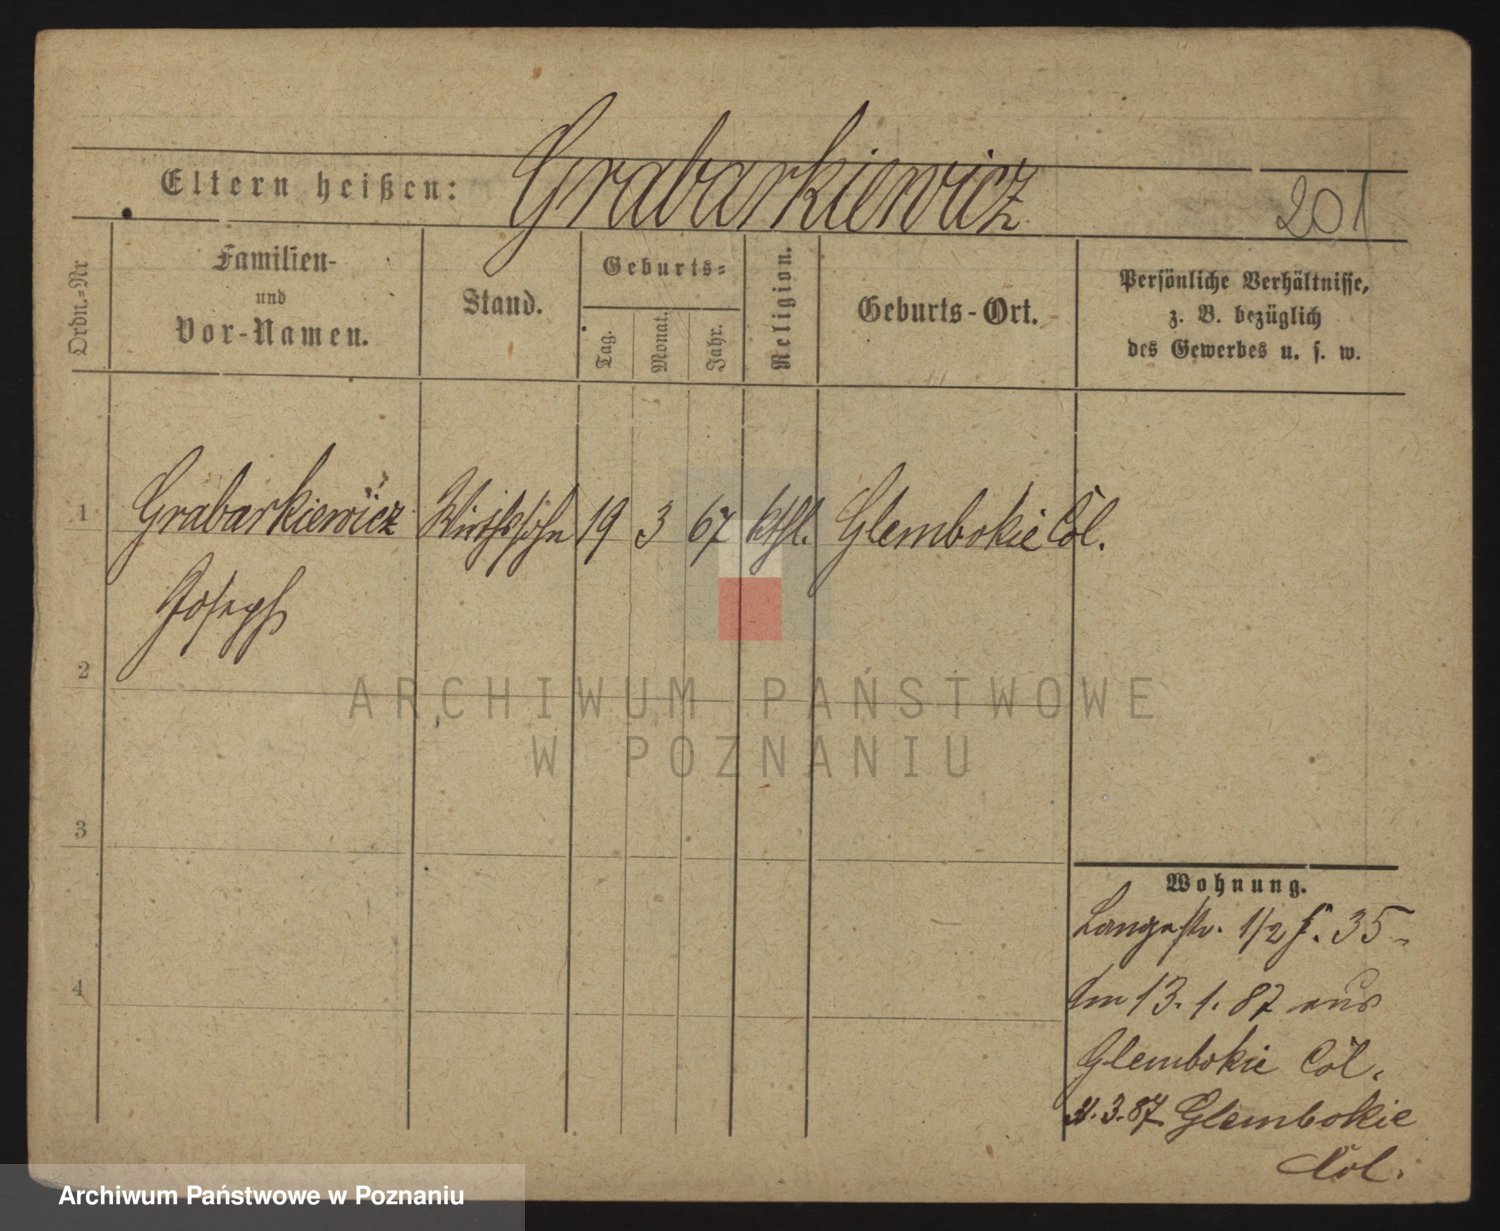 Eltern heißen: Grabarkiewicz 201
Ordn.-Nr
Familien-
und
Vor-Namen.
Stand.
Geburts-
Tag.
Monat.
Jahr.
Religion.
Geburts-Ort.
Persönliche Verhältnisse,
z. B. bezüglich
des Gewerbes u. s. w.
1 Grabarkiewicz Wirthssohn 19 3 67 kthl. Glembokie Col.
Joseph
2
3
4
ARCHIWUM PAŃSTWOWE
W POZNANIU
Wohnung.
Langestr. 1/2 35
13. 1. 87 aus
Glembokie Col.
3. 87 Glembokie
Col.
Archiwum Państwowe w Poznaniu